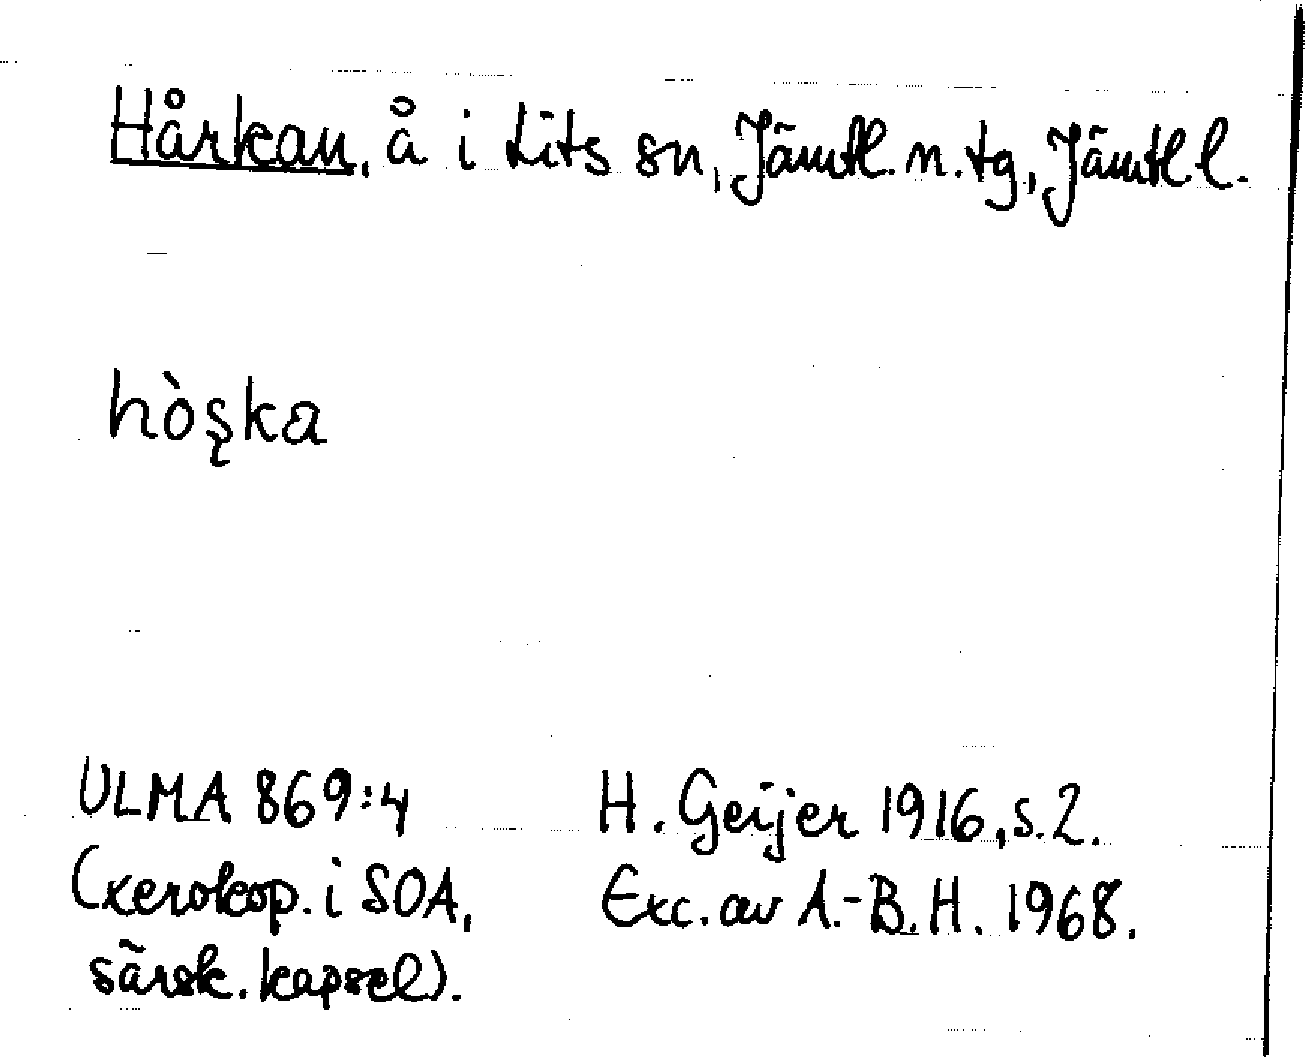 Hårkan, å i Lits sn, Jämtl. n. tg, Jämtl l.
hòʂka
ULMA 869:4
(xerokop. i SOA,
särsk. kapsel).
H. Geijer 1916, s. 2.
Exc. av A.-B. H. 1968.